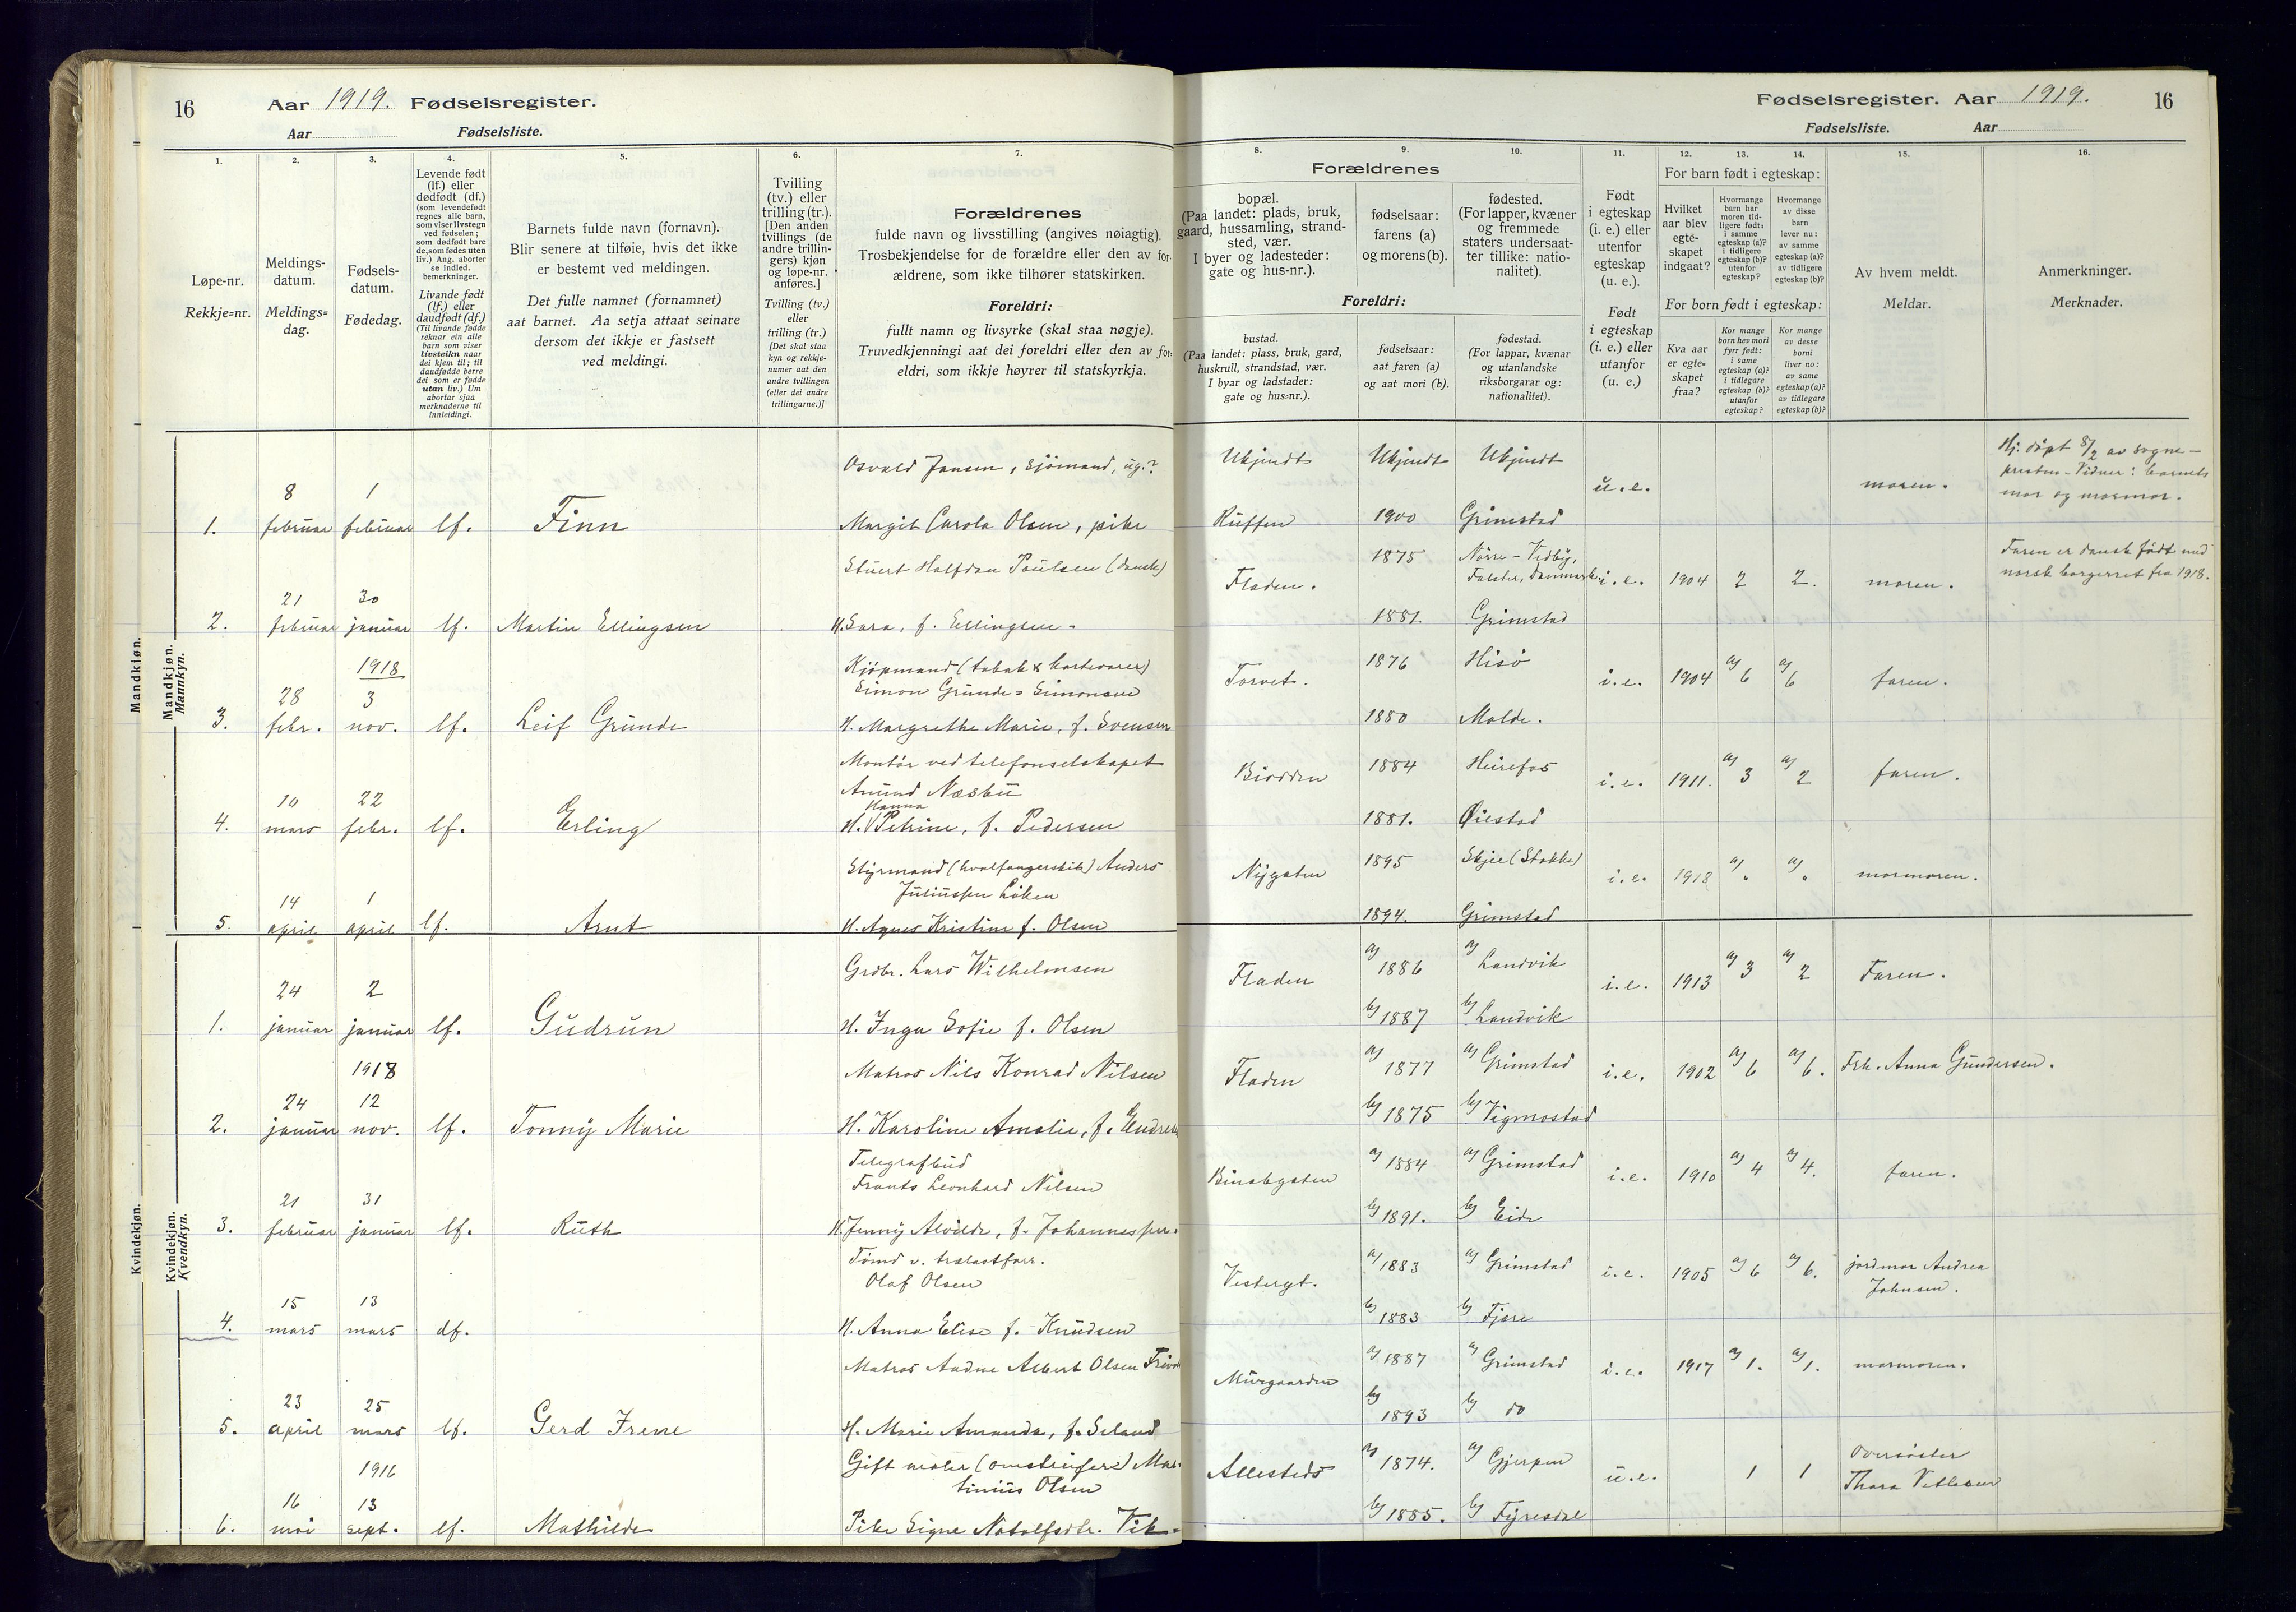 16 Aar 1919. Fødselsregister.
Aar Fødselsliste.
Fødselsregister. Aar 1919. 16
Fødselsliste. Aar
1.
Løpe-nr.
Rekkje=nr.
2.
Meldings-
datum.
Meldings=
dag.
3.
Fødsels-
datum.
Fødedag.
4.
Levende født
(lf.) eller
dødfødt (df.)
(som levendefødt
regnes alle barn,
som viser livstegn
ved fødselen;
som dødfødt bare
de, som fødes uten
liv.) Ang. aborter
se indled.
bemerkninger.
Livande født
(lf.) eller
daudfødt (df.)
(Til livande fødde
reknar ein alle
barn som viser
livsteikn naar
dei kjem til; til
daudfødde berre
dei som er fødde
utan liv.) Um
abortar sjaa
merknaderne til
innleidingi.
5.
Barnets fulde navn (fornavn).
Blir senere at tilføie, hvis det ikke
er bestemt ved meldingen.
Det fulle namnet (fornamnet)
aat barnet. Aa setja attaat seinare
dersom det ikkje er fastsett
ved meldingi.
6.
Tvilling
(tv.) eller
trilling (tr.).
[Den anden
tvillings (de
andre trillin-
gers) kjøn
og løpe-nr.
anføres.]
Tvilling (tv.)
eller
trilling (tr.)
[Det skal staa
kyn og rekkje-
numer aat den
andre tvillingen
(eller dei andre
trillingarne.)]
7.
Forældrenes
fulde navn og livsstilling (angives nøiagtig).
Trosbekjendelse for de forældre eller den av for-
ældrene, som ikke tilhører statskirken.
Foreldri:
fullt namn og livsyrke (skal staa nøgje).
Truvedkjenningi aat dei foreldri eller den av for=
eldri, som ikkje høyrer til statskyrkja.
Forældrenes
8.
bopæl.
(Paa landet: plads, bruk,
gaard, hussamling, strand-
sted, vær.
I byer og ladesteder:
gate og hus-nr.).
9.
fødselsaar:
farens (a)
og morens (b).
10.
fødested.
(For lapper, kvæner
og fremmede
staters undersaat-
ter tillike: natio-
nalitet).
Foreldri:
bustad.
(Paa landet: plass, bruk, gard,
huskrull, strandstad, vær.
I byar og ladstader:
gate og hus=nr.).
fødselsaar:
aat faren (a)
og aat mori (b).
fødestad.
(For lappar, kvænar
og utanlandske
riksborgarar og:
nationalitet).
11.
Født
i egteskap
(i. e.) eller
utenfor
egteskap
(u. e.).
Født
i egteskap
(i. e.) eller
utanfor
(u. e.)
12. 13. 14.
For barn født i egteskap:
Hvilket
aar blev
egte-
skapet
indgaat?
Hvormange
barn har
moren tid-
ligere født:
i samme
egteskap (a)?
i tidligere
egteskap (b)?
utenfor
egteskap?
Hvormange
av disse
barn
lever nu:
av samme
egteskap (a)?
av tidligere
egteskap (b)?
For born født i egteskap:
Kva aar
er egte-
skapet
fraa?
Kor mange
born hev mori
fyrr født:
i same
egteskap (a)?
i tidlegare
egteskap (b)?
utanfor
egteskap?
Kor mange
av desse
borni
liver no:
av same
egteskap (a)?
av tidlegare
egteskap (b)?
15.
Av hvem meldt.
Meldar.
16.
Anmerkninger.
Merknader.
Mandkjøn.
Mandkjøn.
Mannkyn.
1. 8 februar 1 februar lf. Finn
Osvald Jansen, sjömand, ug.?
Margit Carola Olsen, pike
Ukjendt Ukjendt Ukjendt
Ruffen 1900 Grimstad
u.e. moren.
Hj. döpt 8/2 av sogne-
presten - Vidner: barnets
mor og mormor.
2. 21 februar 30 januar lf. Martin Ellingsen
Stuert Halfdan Poulsen (dansk)
H. Sara, f. Ellingsen.
Fladen.
1875 Nörre-Vedby,
Falster, Danmark
1881. Grimstad
i.e. 1904 2 2. moren.
Faren er dansk födt med
norsk borgerret fra 1918.
3. 28 febr. 1918 3 nov. lf. Leif Grunde
Kjöpmand (tobak & kortevarer)
Simon Grunde Simonsen
H. Margrethe Marie, f. Svensen
Torvet.
1876 Hisö
1880 Molde.
i.e. 1904 a) 6 a) 6 faren.
4. 10 mars 22 febr. lf. Erling
Montör ved telefonselskapet
Amund Næsbü
Hanna
H. Petrine, f. Pedersen
Biodden
1884 Heirefos
1881. Øiestad
i.e. 1911. a) 3 a) 2 faren.
5. 14 april 1 april lf. Arnt
Styrmand (hvalfangerskib) Anders
Juliussen Löken
H. Agnes Kristine f. Olsen
Nygaten
1895 Skjee (Stokke)
1894. Grimstad
i.e. 1918 a) " a) " mormoren.
Kvindekjøn.
Kvindekjøn.
Kvendkyn.
1. 24 januar 2 januar lf. Gudrun
Grdbr. Lars Wilhelmsen
H. Inga Sofie f. Olsen
Fladen
a) 1886 a) Landvik
b) 1887 b) Landvik
i.e. 1913 a) 3 a) 2 Faren.
2. 24 januar 1918 12 nov. lf. Tonny Marie
Matros Nils Konrad Nilsen
H. Karoline Amalie, f.
Fladen
a) 1877 a) Grimstad
b) 1875 b) Vigmostad
i.e. 1902 a) 6 a) 6. Frk. Anna Gundersen.
3. 21 februar 31 januar lf. Ruth
Telegrafbud
Frants Leonhard Nilsen
H. Jenny Alvilde, f. Johannessen.
Binabgaten
a) 1884 a) Grimstad
b) 1891. b) Eide
i.e. 1910 a) 4 a) 4. faren.
4. 15 mars 13 mars df.
Tömd v. trælastforr.
Olaf Olsen
H. Anna Elise f. Knudsen
Vestergt.
a) 1883 a) Grimstad
b) 1883 b) Fjære
i.e. 1905 a) 6 a) 6. jordmor Andrea
Johnsen.
5. 23 april 25 mars lf. Gerd Irene
Matros Audne Albert Olsen
H. Marie Amanda, f. Seland
Murgaarden
a) 1887 a) Grimstad
b) 1893 b) do
i.e. 1917 a) 1. a) 1. mormoren.
6. 16 mai 1916 13 sept. lf. Mathilde
Gift maler (omstreifer) Mar-
tinius Olsen
Pike Signe Notolfsdtr. Vik.
Allesteds
a) 1874. a) Gjerpen
b) 1885. b) Fyresdal
u.e. 1 1 Oversöster
Thora